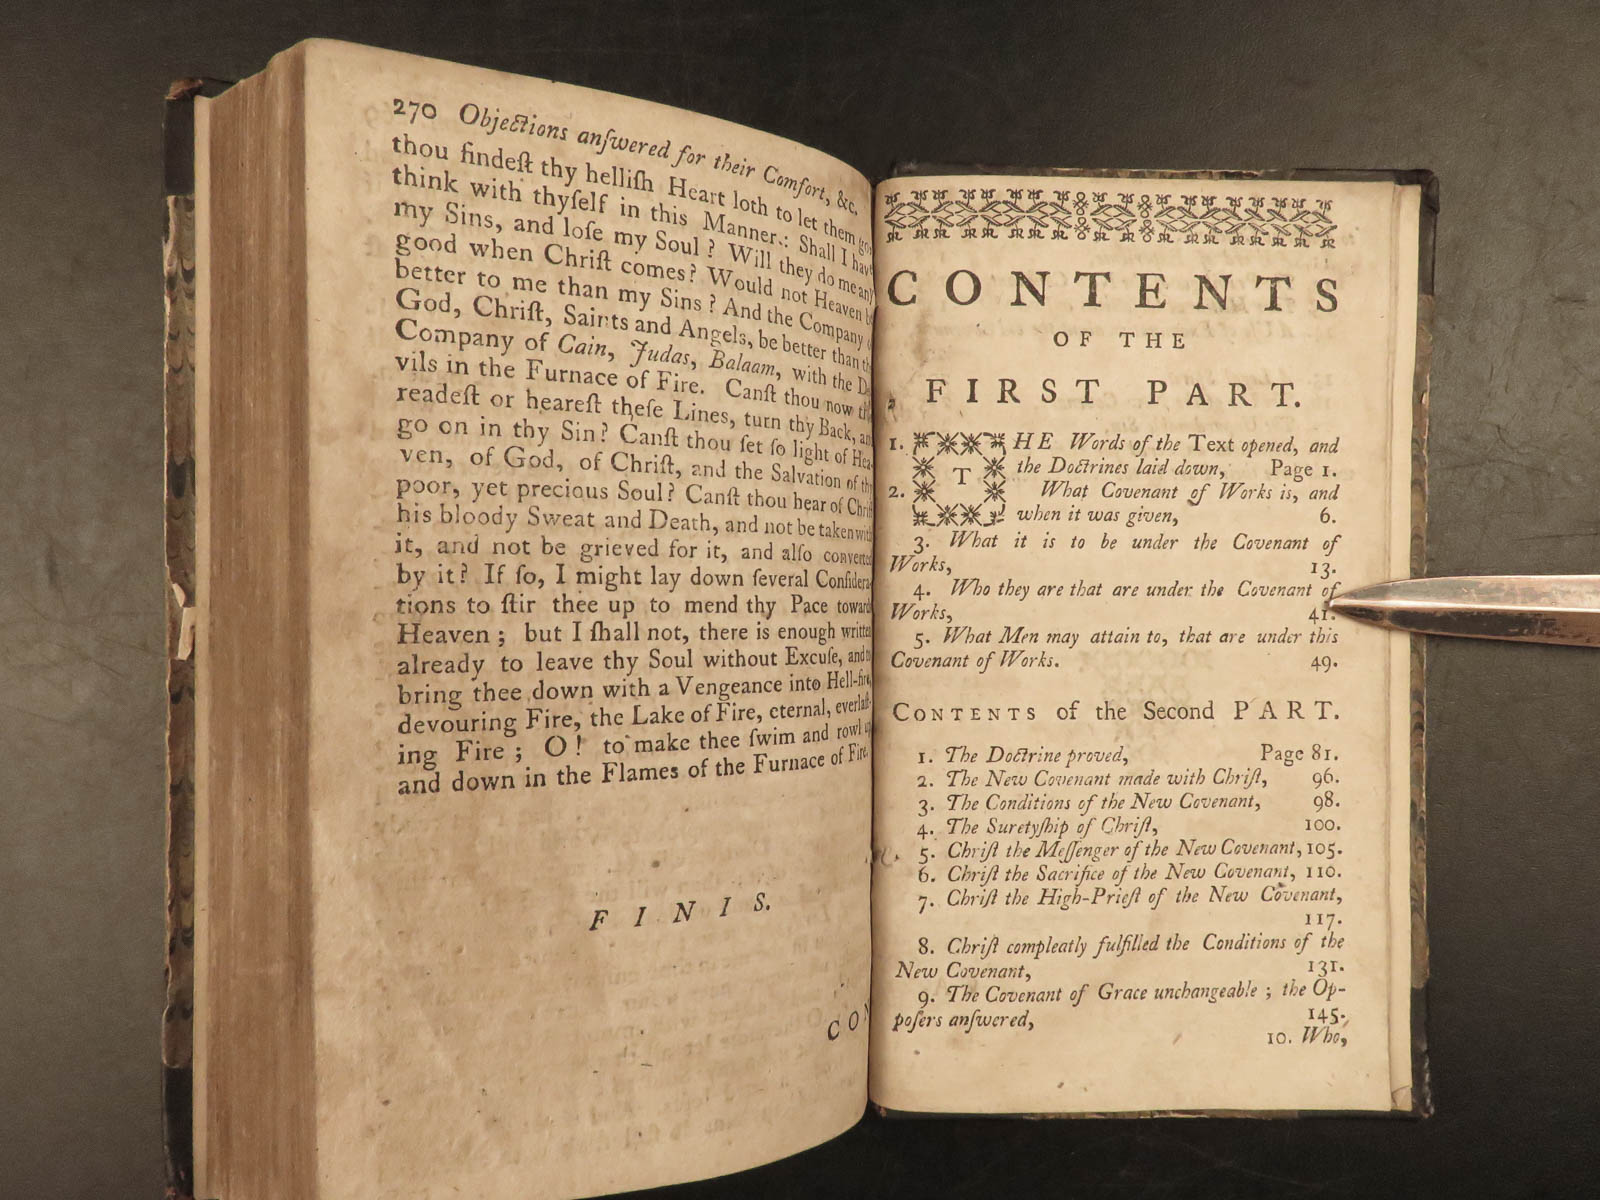 270 Objections anſwered for their Comfort, &c.
thou findeſt thy helliſh Heart loth to let them go,
think with thyſelf in this Manner: Shall I have
my Sins, and loſe my Soul? Will they do me any
good when Chriſt comes? Would not Heaven be
better to me than my Sins? And the Company
God, Chriſt, Saints and Angels, be better than the
Company of Cain, Judas, Balaam, with the De
vils in the Furnace of Fire. Canſt thou now
readeſt or heareſt theſe Lines, turn thy Back, and
go on in thy Sin? Canſt thou ſet ſo light of Hea
ven, of God, of Chriſt, and the Salvation of thy
poor, yet precious Soul? Canſt thou hear of Chriſt
his bloody Sweat and Death, and not be taken with
it, and not be grieved for it, and alſo converted
by it? If ſo, I might lay down ſeveral Conſidera
tions to ſtir thee up to mend thy Pace toward
Heaven; but I ſhall not, there is enough written
already to leave thy Soul without Excuſe, and to
bring thee down with a Vengeance into Hell-fire,
devouring Fire, the Lake of Fire, eternal, everlaſt-
ing Fire; O! to make thee ſwim and rowl up
and down in the Flames of the Furnace of Fire.
FINIS.
CON
CONTENTS
OF THE
FIRST PART.
1. THE Words of the Text opened, and
the Doctrines laid down, Page 1.
2. What Covenant of Works is, and
when it was given, 6.
3. What it is to be under the Covenant of
Works, 13.
4. Who they are that are under the Covenant of
Works, 41.
5. What Men may attain to, that are under this
Covenant of Works. 49.
CONTENTS of the Second PART.
1. The Doctrine proved, Page 81.
2. The New Covenant made with Chriſt, 96.
3. The Conditions of the New Covenant, 98.
4. The Suretyſhip of Chriſt, 100.
5. Chriſt the Meſſenger of the New Covenant, 105.
6. Chriſt the Sacrifice of the New Covenant, 110.
7. Chriſt the High-Prieſt of the New Covenant,
117.
8. Chriſt compleatly fulfilled the Conditions of the
New Covenant, 131.
9. The Covenant of Grace unchangeable; the Op-
poſers anſwered, 145.
10. Who,